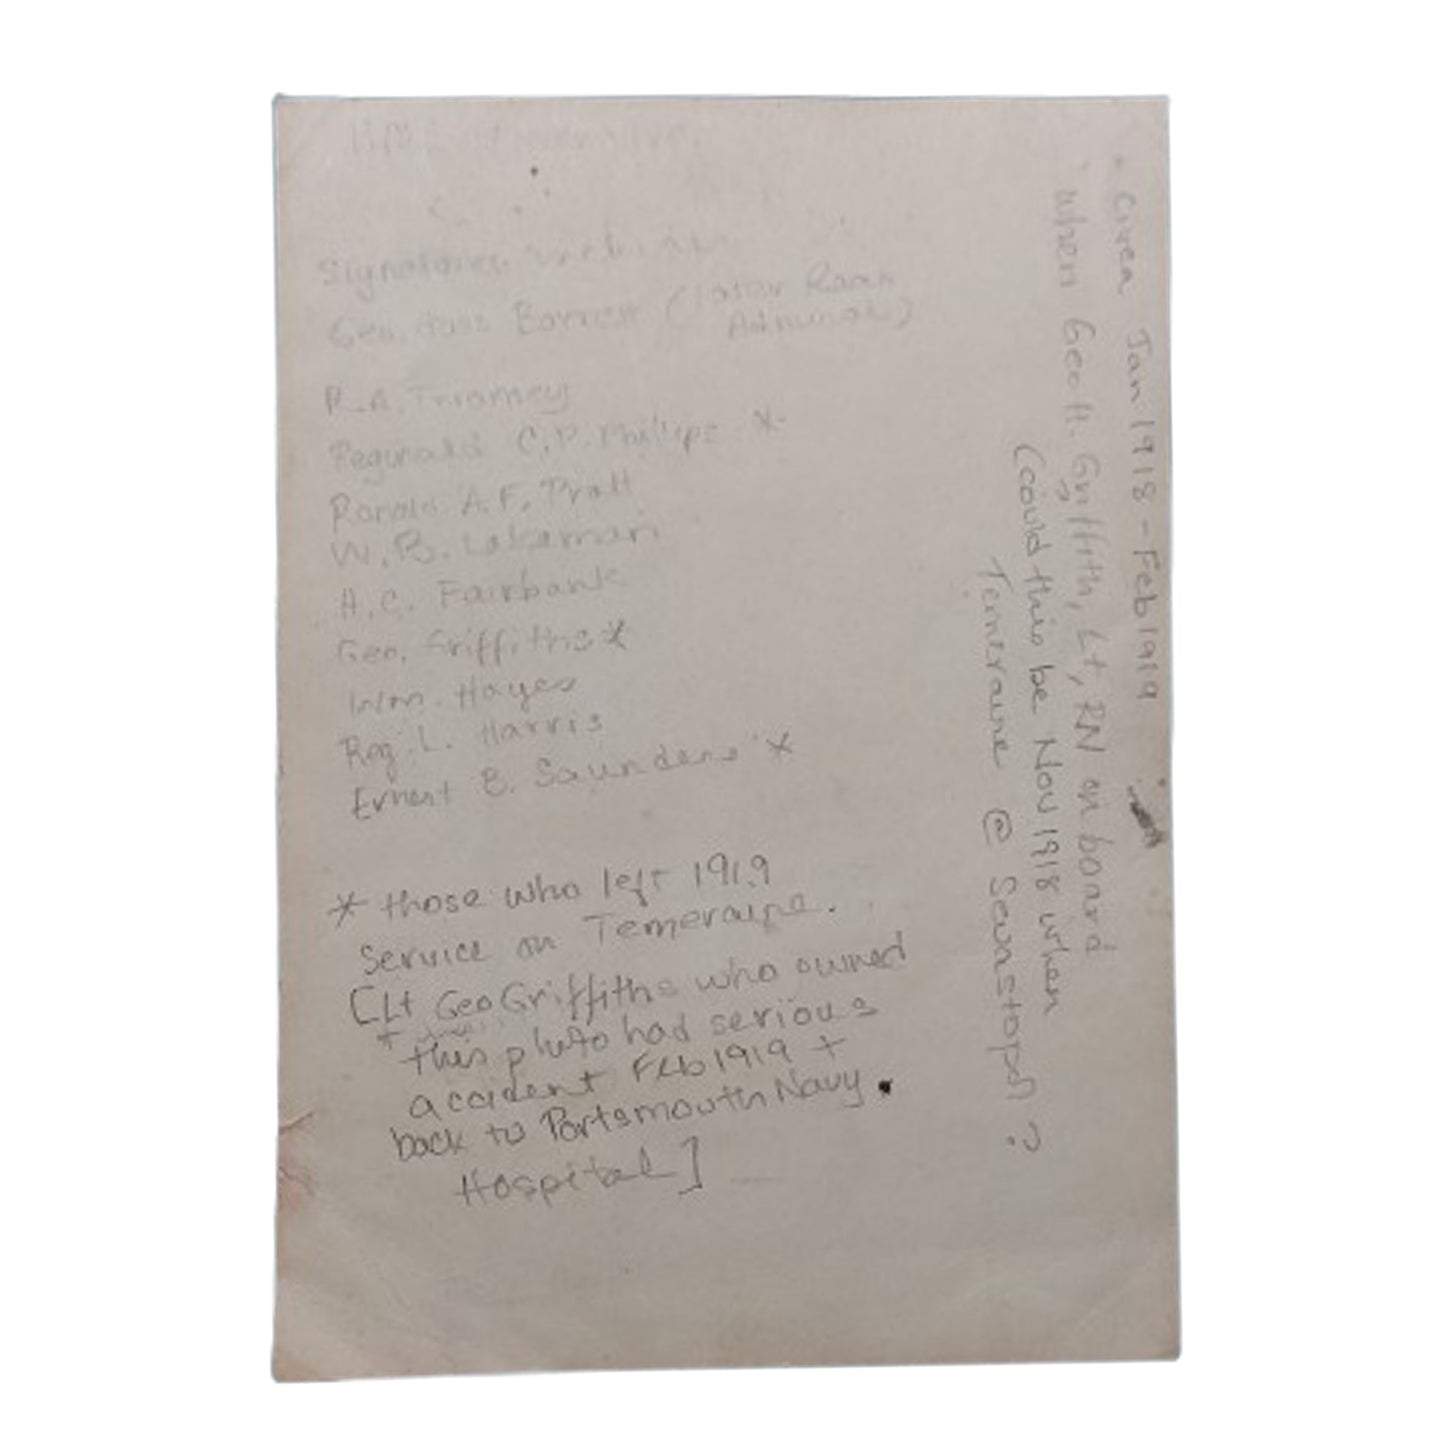 HMS Temeraire.
Signatures include
Geo. Ross Barrett (later Rear
Admiral)
R.A. Triomey
Reginald C.P. Phillips *
Ronald A.F. Pratt
W.B. Lakaman
H.C. Fairbank
Geo. Griffiths *
Wm. Hayes
Reg. L. Harris
Ernest E. Saunders *
* those who left 1919
service on Temeraire.
[Lt Geo Griffiths who owned
this photo had serious
accident Feb 1919 +
back to Portsmouth Navy.
Hospital]
• Circa Jan 1918 - Feb 1919
• when Geo H. Griffith, Lt, RN on board
(could this be Nov 1918 when
Temeraire @ Sevastopol ?